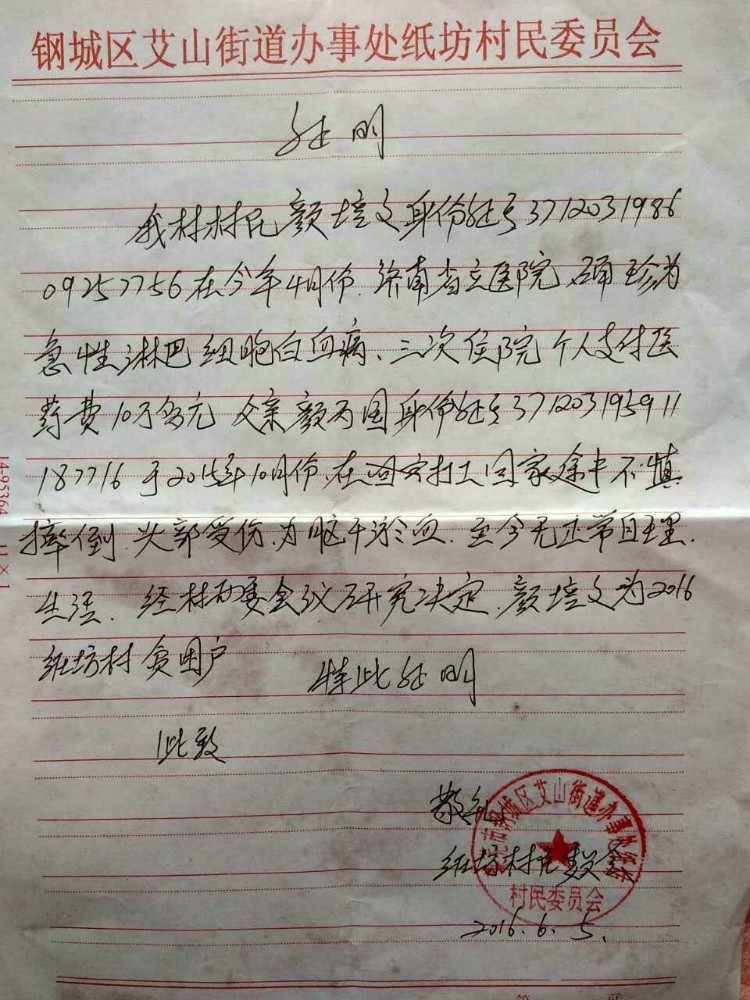 钢城区艾山街道办事处纸坊村民委员会
证明
我村村民颜培文身份证号3712031986
09257756在今年4月份.济南省立医院,确珍为
急性淋巴细胞白血病、三次住院个人支付医
药费10万多元 父亲颜丙国身份证号371203195911
187716于2015年10月份,在 打工回家途中不慎
摔倒.头部受伤,为脑干淤血.至今无正常自理.
生活.经村两委会议研究决定.颜培文为2016
纸坊村贫困户
特此证明
此致
敬礼
纸坊村民委员会
2016.6.5.
钢城区艾山街道办事处纸坊
村民委员会